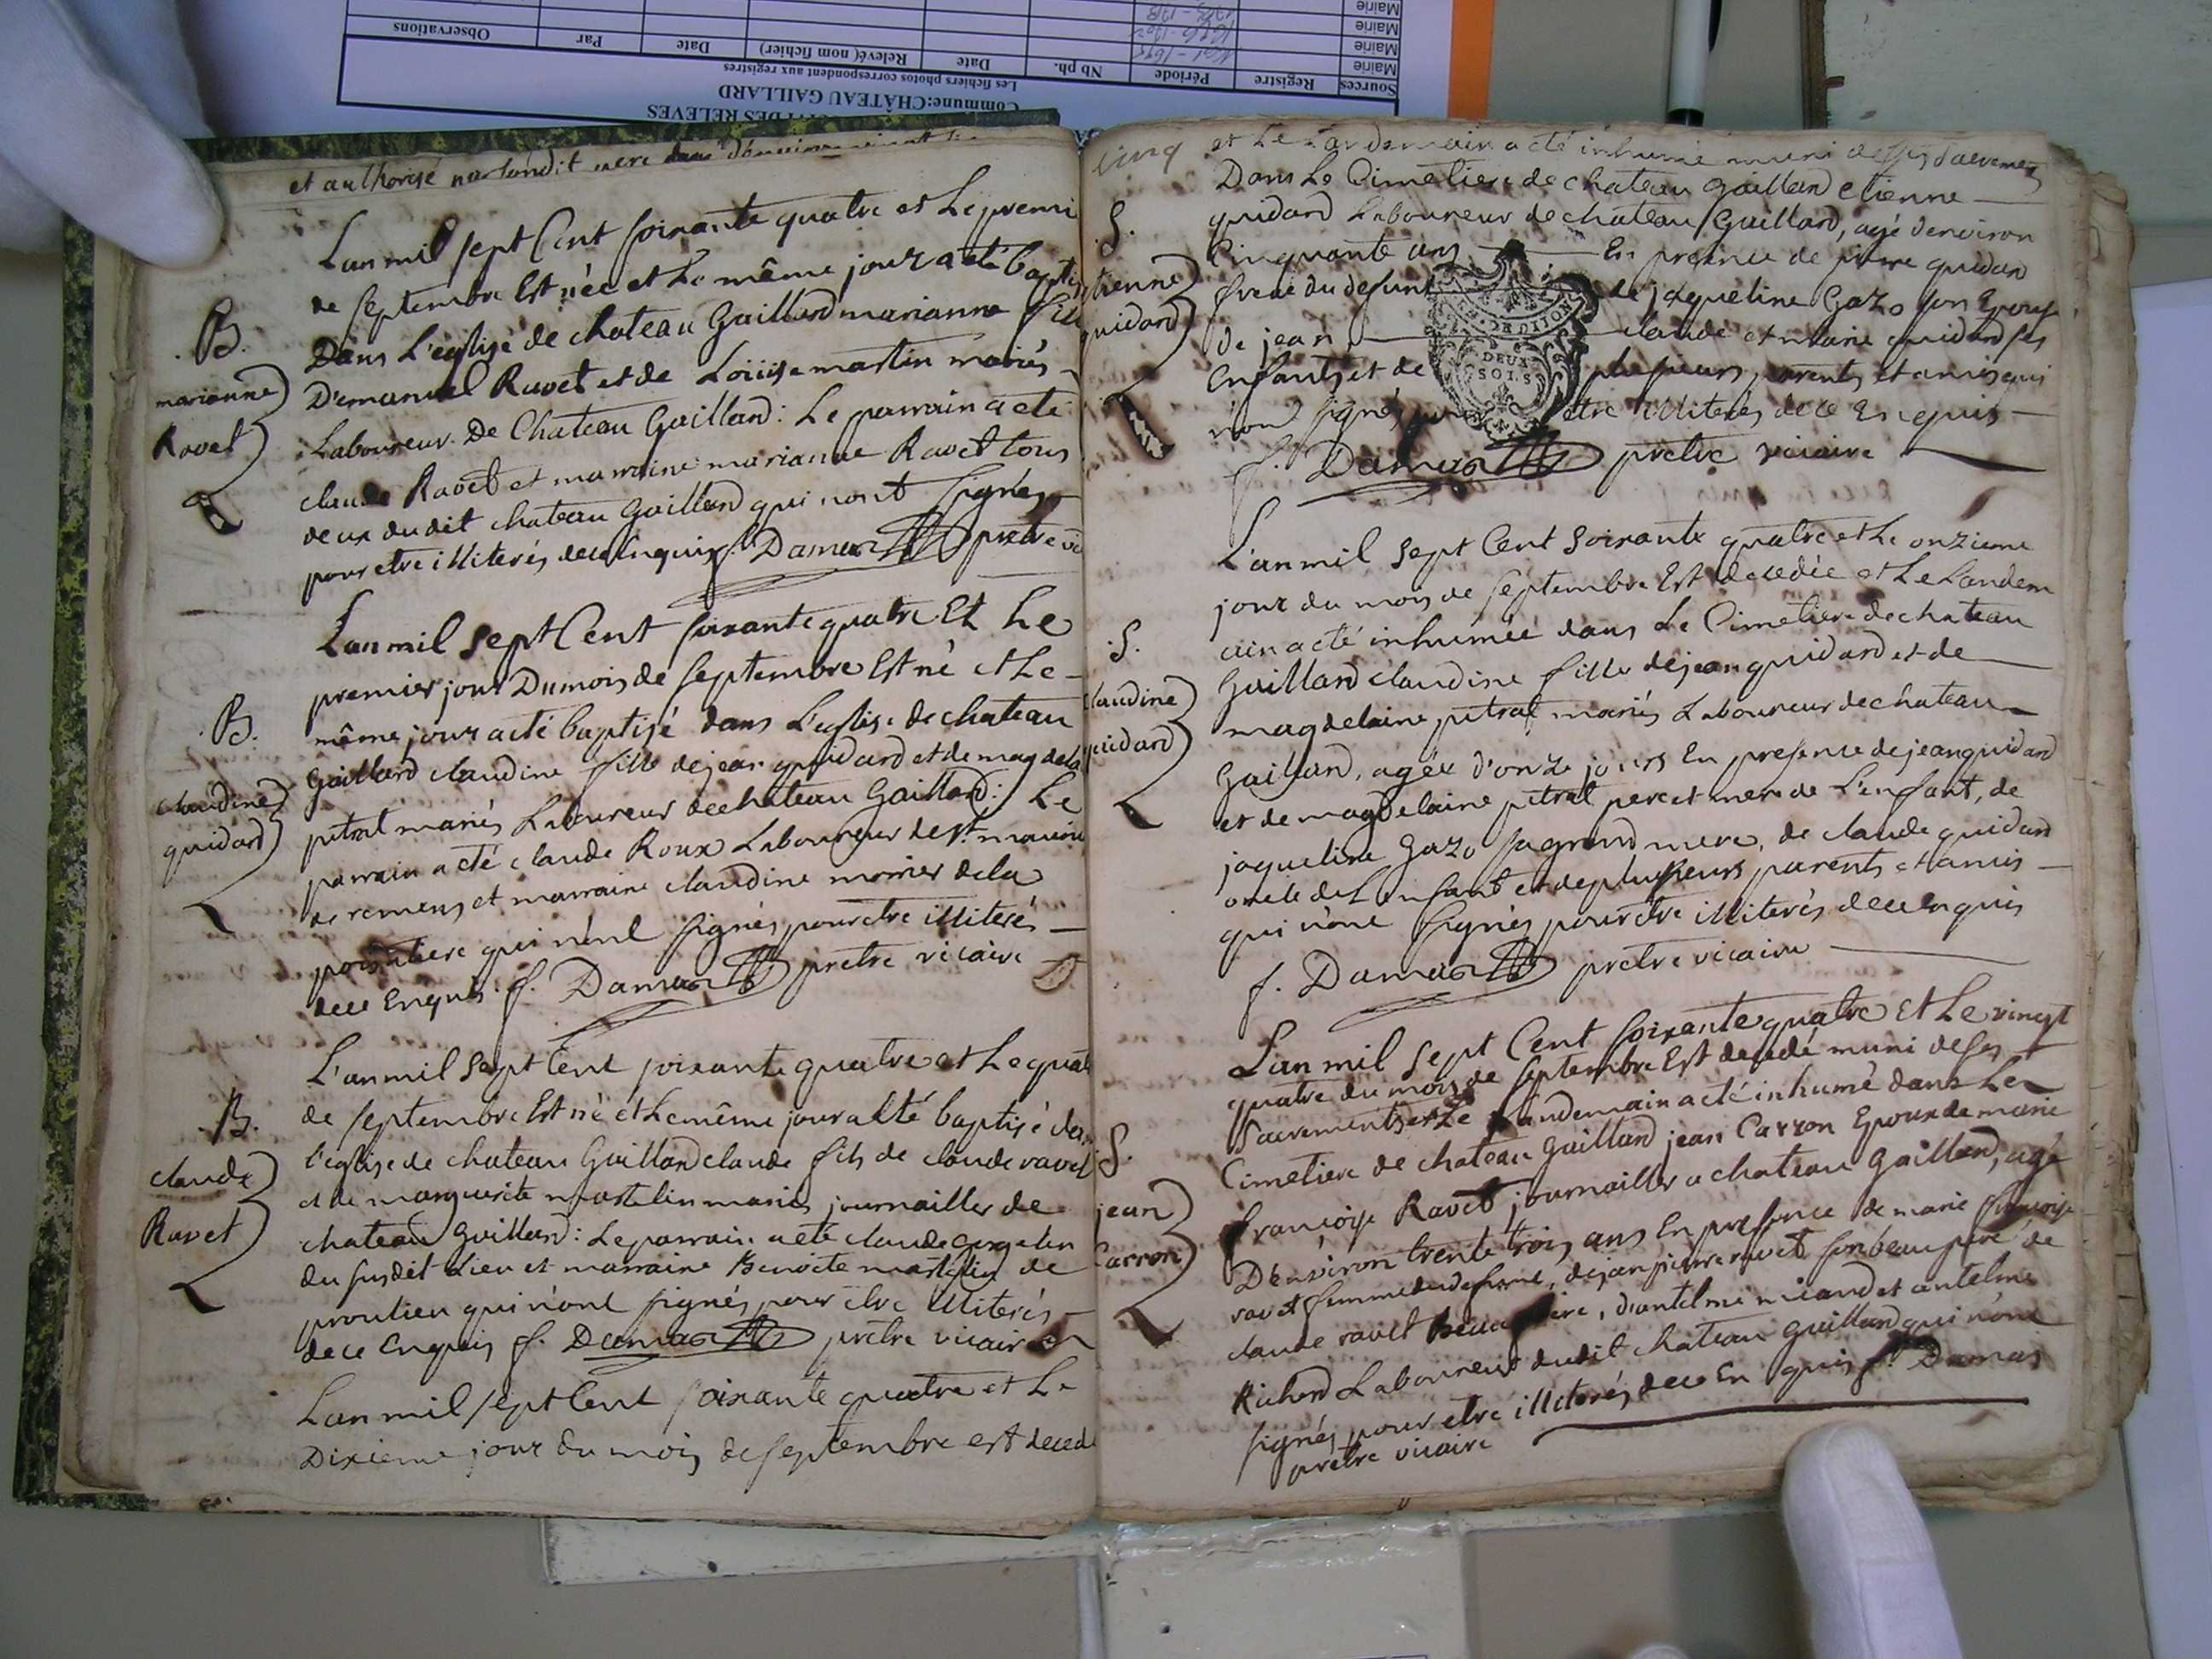 Sources Registre Période Nb ph. Date Relevé( nom fichier) Date Par Observations
Mairie
Mairie
Mairie
Mairie
Les fichiers photos correspondent aux registres
Commune:CHÂTEAU GAILLARD
DES RELEVES
et authorisé
L'an mil sept Cent soixante quatre et Le premi
de septembre Est née et Le même jour a été bapti
Dans L'eglise de chateau Gaillard marianne fill
D'emanuel Ravet et de Loüise martin mariés
Laboureur De Chateau Gaillard : Le parrain a eté
claude Ravet et marraine marianne Ravet tous
deux dudit chateau Gaillard qui nont signés
pour etre illiterés de ce Enquis f. Damas pretre vi
B.
marianne
Ravet
L'an mil sept Cent soixante quatre Et Le
premier jour Du mois de septembre Est né et Le
même jour a eté baptisé dans L'eglise de chateau
Gaillard claudine fille de jean guidard et de magdela
pitrat mariés Laboureur de chateau Gaillard : Le
parrain a eté claude Roux Laboureur de st. mauri
de remens et marraine claudine monier de la
poisatiere qui n'ont signés pour etre illiterés
de ce Enquis f. Damas pretre vicaire
B.
claudine
guidard
L'an mil sept Cent soixante quatre et Le quat
de septembre Est né et Le même jour a eté baptisé dans
l'eglise de chateau Gaillard claude fils de claude ravet
et de marguerite martelin mariés journaillier de
chateau Gaillard : Le parrain a eté claude
du susdit Lieu et marraine Benoite martelin de
proulieu qui n'ont signés pour etre illiterés
de ce Enquis f. Damas pretre vicaire
B.
claude
Ravet
L'an mil sept Cent soixante quatre et Le
Dixieme jour du mois de septembre est decedé
cinq
et Le Landemain a eté inhumé muni de ses sacremens
Dans Le Cimetiere de chateau Gaillard etienne
guidard Laboureur de chateau Gaillard, agé d'environ
Cinquante ans En presence de pierre guidard
frere du defunt de jaqueline Gazo son Epouse
de jean claude et marie guidard ses
Enfants et de plusieurs parents et amis qui
n'ont signés pour etre illiterés de ce Enquis
f. Damas pretre vicaire
DEUX
SOLS
S.
etienne
guidard
L'an mil sept Cent soixante quatre et Le onzieme
jour du mois de septembre Est decedée et Le Landem
ain a eté inhumée dans Le Cimetiere de chateau
Gaillard claudine fille de jean guidard et de
magdelaine pitrat mariés Laboureur de chateau
Gaillard, agée d'onze jours En presence de jean guidard
et de magdelaine pitrat pere et mere de L'enfant, de
jaqueline Gazo sa grand mere, de claude guidard
oncle de L'enfant et de plusieurs parents et amis
qui n'ont signés pour etre illiterés de ce Enquis
f. Damas pretre vicaire
S.
claudine
guidard
L'an mil sept Cent soixante quatre et Le vingt
quatre du mois de septembre Est decedé muni de ses
sacrements et Le Landemain a eté inhumé dans Le
Cimetiere de chateau Gaillard jean Carron Epoux de marie
françoise Ravet journaillier a chateau Gaillard, agé
D'environ trente trois ans En presence de marie françoise
ravet femme du defunt, de jean pierre ravet son beau pere de
claude ravet beau frere, d'antelme micand et antelme
Richerd Laboureur dudit chateau Gaillard qui n'ont
signés pour etre illiterés de ce Enquis f. Damas
pretre vicaire
S.
jean
Carron